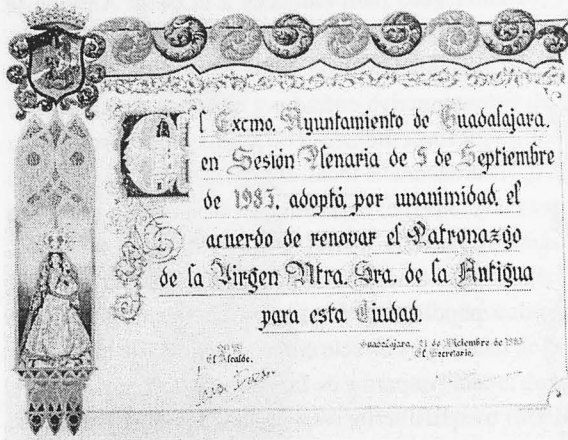 El Excmo. Ayuntamiento de Guadalajara,
en Sesión Plenaria de 5 de Septiembre
de 1983, adoptó, por unanimidad, el
acuerdo de renovar el Patronazgo
de la Virgen Ntra. Sra. de la Antigua
para esta Ciudad.
Guadalajara, 21 de Diciembre de 1983
El Alcalde, El Secretario,